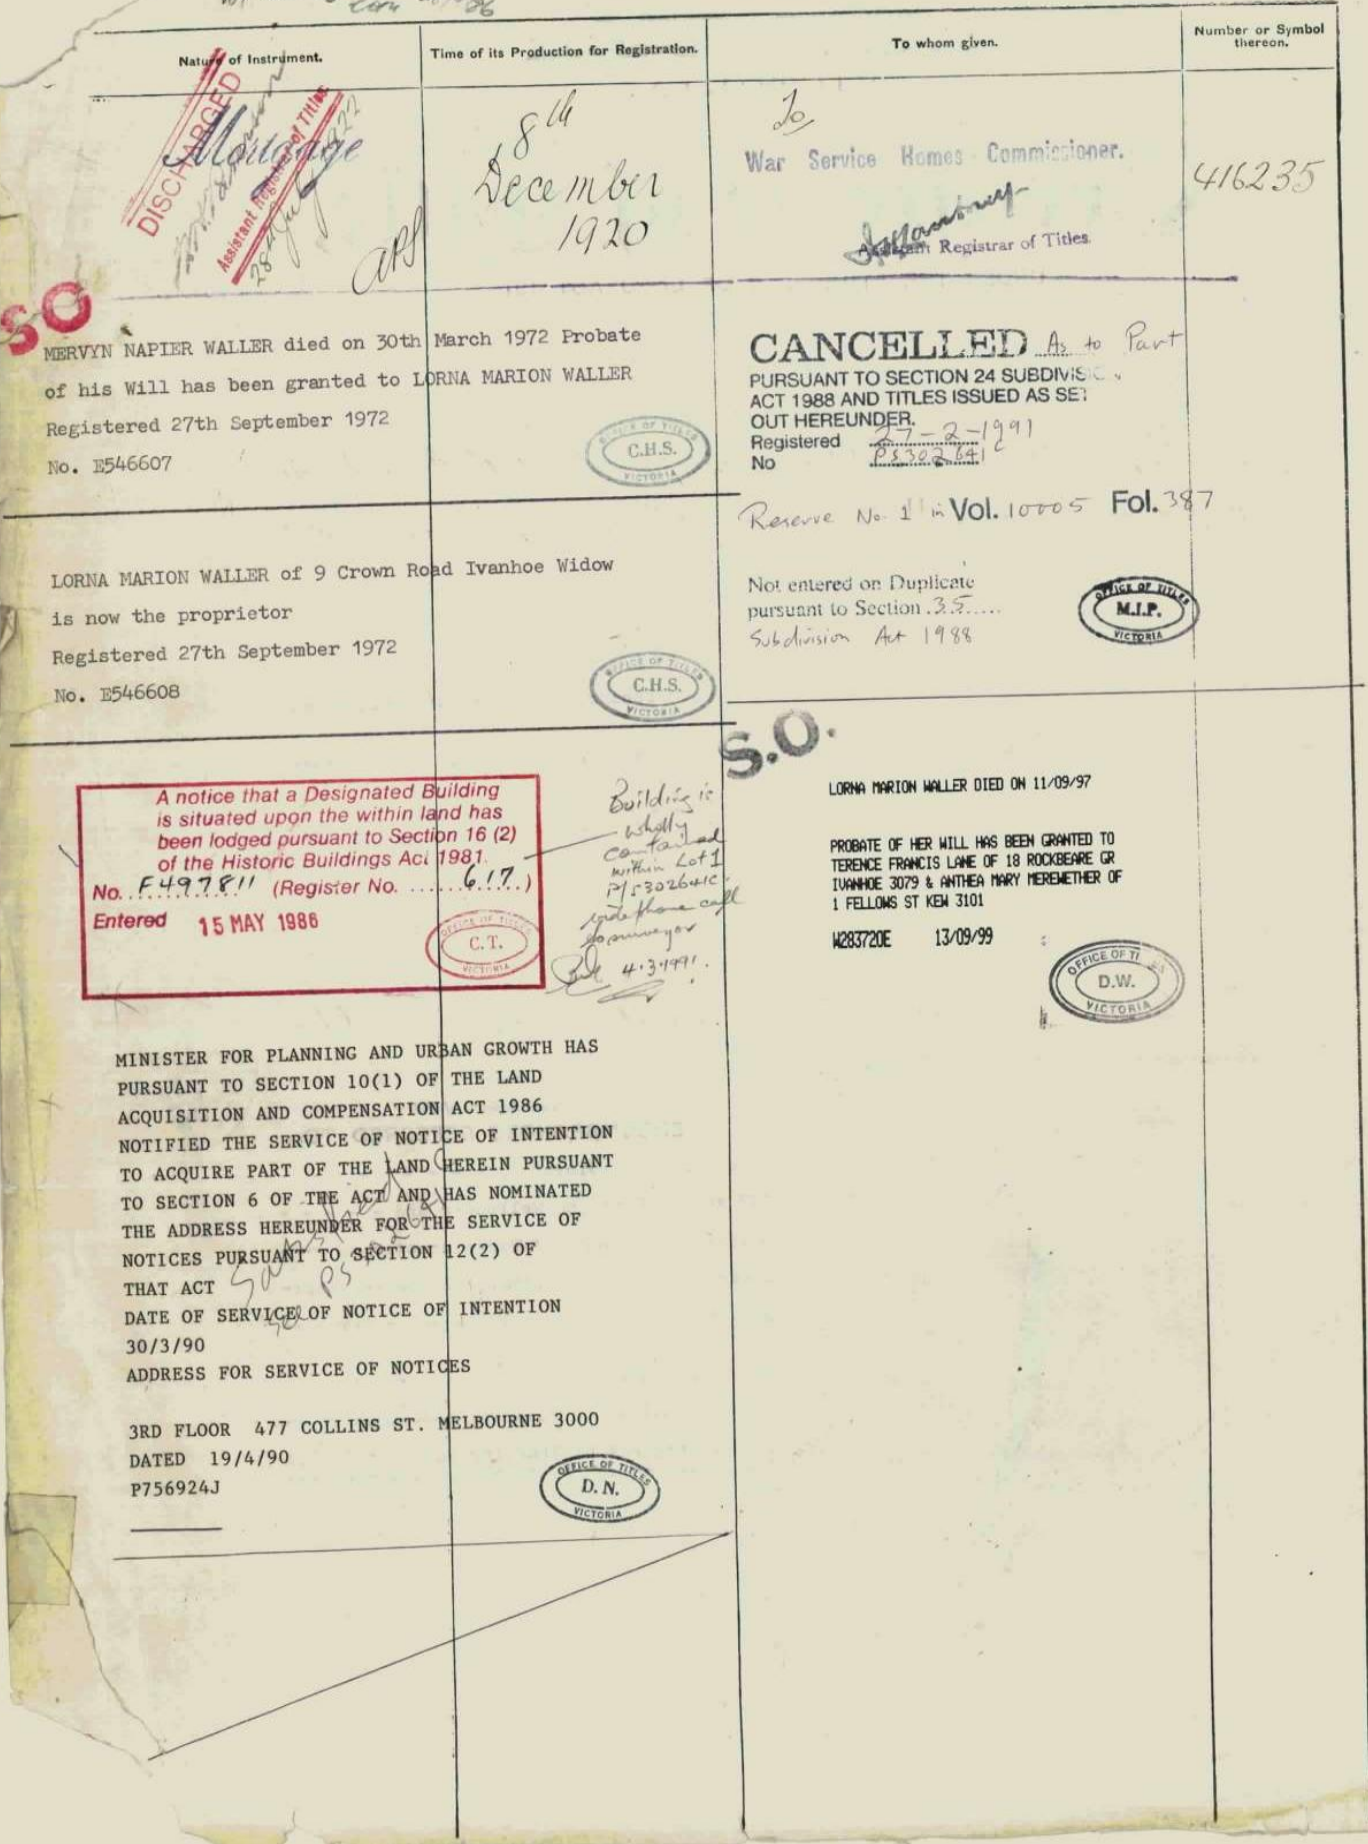 Nature of Instrument.
Time of its Production for Registration.
To whom given.
Number or Symbol
thereon.
DISCHARGED
Mortgage
Assistant Registrar of Titles
28 July
8th
December
1920
To
War Service Homes Commissioner.
Assistant Registrar of Titles.
416235
SO
MERVYN NAPIER WALLER died on 30th March 1972 Probate
of his Will has been granted to LORNA MARION WALLER
Registered 27th September 1972
No. E546607
OFFICE OF TITLES
C.H.S.
VICTORIA
LORNA MARION WALLER of 9 Crown Road Ivanhoe Widow
is now the proprietor
Registered 27th September 1972
No. E546608
OFFICE OF TITLES
C.H.S.
VICTORIA
A notice that a Designated Building
is situated upon the within land has
been lodged pursuant to Section 16 (2)
of the Historic Buildings Act 1981.
No. F497811 (Register No. ......617..)
Entered 15 MAY 1986
OFFICE OF TITLES
C.T.
VICTORIA
Building is
wholly
contained
within Lot 1
P/S302641C.
phone call
to surveyor
4.3.1991.
MINISTER FOR PLANNING AND URBAN GROWTH HAS
PURSUANT TO SECTION 10(1) OF THE LAND
ACQUISITION AND COMPENSATION ACT 1986
NOTIFIED THE SERVICE OF NOTICE OF INTENTION
TO ACQUIRE PART OF THE LAND HEREIN PURSUANT
TO SECTION 6 OF THE ACT AND HAS NOMINATED
THE ADDRESS HEREUNDER FOR THE SERVICE OF
NOTICES PURSUANT TO SECTION 12(2) OF
THAT ACT
DATE OF SERVICE OF NOTICE OF INTENTION
30/3/90
ADDRESS FOR SERVICE OF NOTICES
3RD FLOOR 477 COLLINS ST. MELBOURNE 3000
DATED 19/4/90
P756924J
OFFICE OF TITLES
D.N.
VICTORIA
CANCELLED As to Part
PURSUANT TO SECTION 24 SUBDIVISION
ACT 1988 AND TITLES ISSUED AS SET
OUT HEREUNDER.
Registered 27-2-1991
No PS302641C
Reserve No. 1 in Vol. 10005 Fol. 387
Not entered on Duplicate
pursuant to Section .35.....
Subdivision Act 1988
OFFICE OF TITLES
M.I.P.
VICTORIA
S.O.
LORNA MARION WALLER DIED ON 11/09/97
PROBATE OF HER WILL HAS BEEN GRANTED TO
TERENCE FRANCIS LANE OF 18 ROCKBEARE GR
IVANHOE 3079 & ANTHEA MARY MEREWETHER OF
1 FELLOWS ST KEW 3101
W283720E 13/09/99
OFFICE OF TITLES
D.W.
VICTORIA